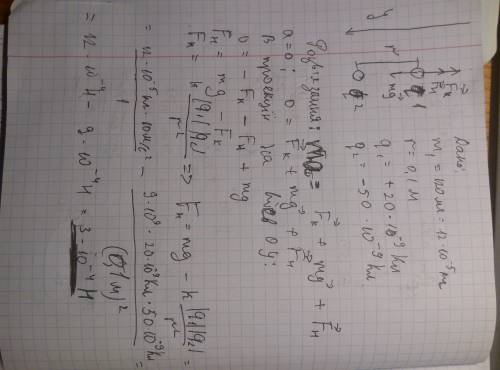 Дано
m₁ = 120 мг = 12 · 10⁻⁵ кг
r = 0,1 м
q₁ = +20 · 10⁻⁹ Кл
q₂ = -50 · 10⁻⁹ Кл.
y
r
F⃗н F⃗к
1
mg⃗
2
ma⃗ = F⃗к + mg⃗ + F⃗н
a = 0; 0 = F⃗к + mg⃗ + F⃗н
В проекції на вісь OY:
0 = -Fк - Fн + mg
Fн = mg - Fк
Fк = k |q₁||q₂| / r² => Fн = mg - k |q₁||q₂| / r² =
= 12 · 10⁻⁵ кг · 10 м/с² / 1 - 9 · 10⁹ · 20 · 10⁻⁹ Кл · 50 · 10⁻⁹ Кл / (0,1 м)² =
= 12 · 10⁻⁴ Н - 9 · 10⁻⁴ Н = 3 · 10⁻⁴ Н